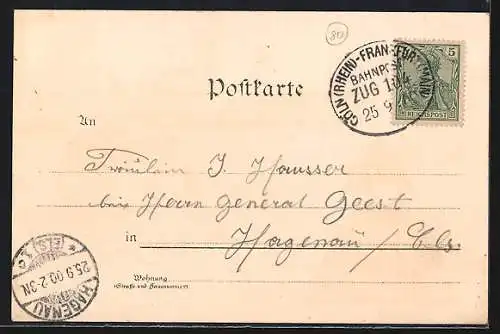 80
CÖLN (RHEIN)-FRANKFURT (MAIN)
BAHNPOST
ZUG 104
25 9
5
REICHSPOST
Postkarte
An
Fräulein J. Hausser
bei Herrn General Geest
in Hagenau / Els.
Wohnung
(Straße und Hausnummer)
ELS. 1c
25.9.00.2-3N
HAGENAU